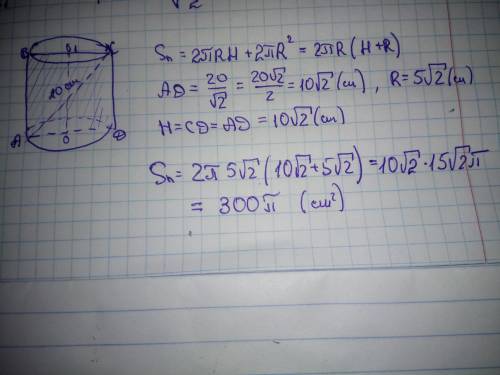 √2
B
O₁
C
20 см
A
O
D
Sₙ = 2πRH + 2πR² = 2πR (H+R)
AD = 20/√2 = 20√2/2 = 10√2 (см) , R = 5√2 (см)
H = CD = AD = 10√2 (см)
Sₙ = 2π 5√2 (10√2 + 5√2) = 10√2 · 15√2 π
= 300π (см²)